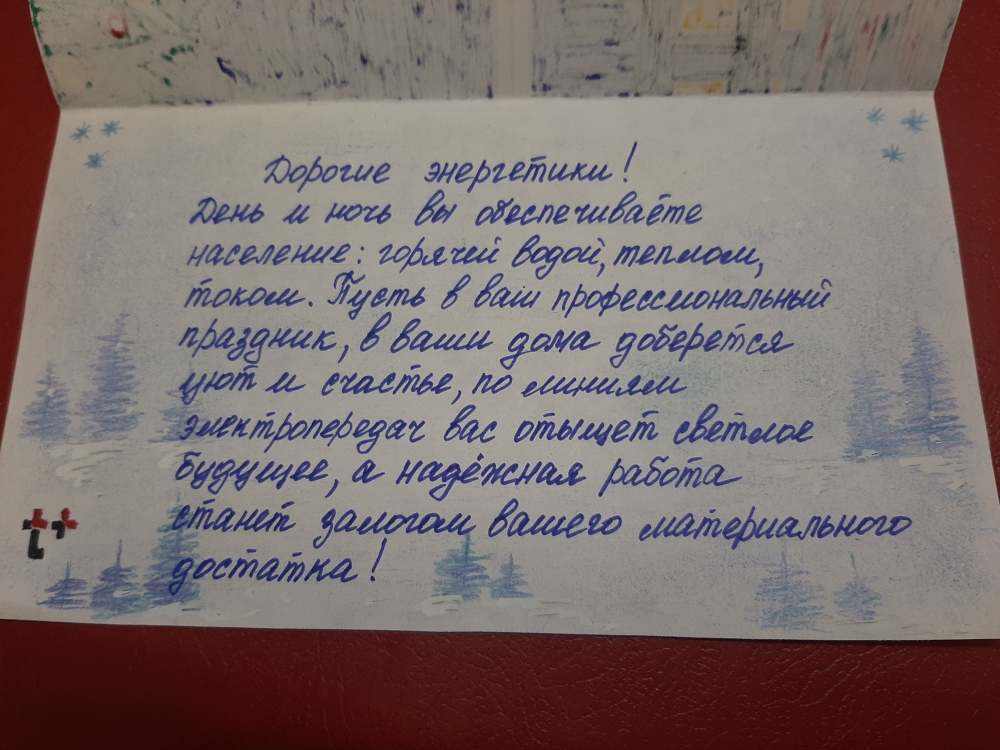 Дорогие энергетики!
День и ночь вы обеспечиваете
население: горячей водой, теплом,
током. Пусть в ваш профессиональный
праздник, в ваши дома доберется
уют и счастье, по линиям
электропередач вас отыщет светлое
будущее, а надёжная работа
станет залогом вашего материального
достатка!